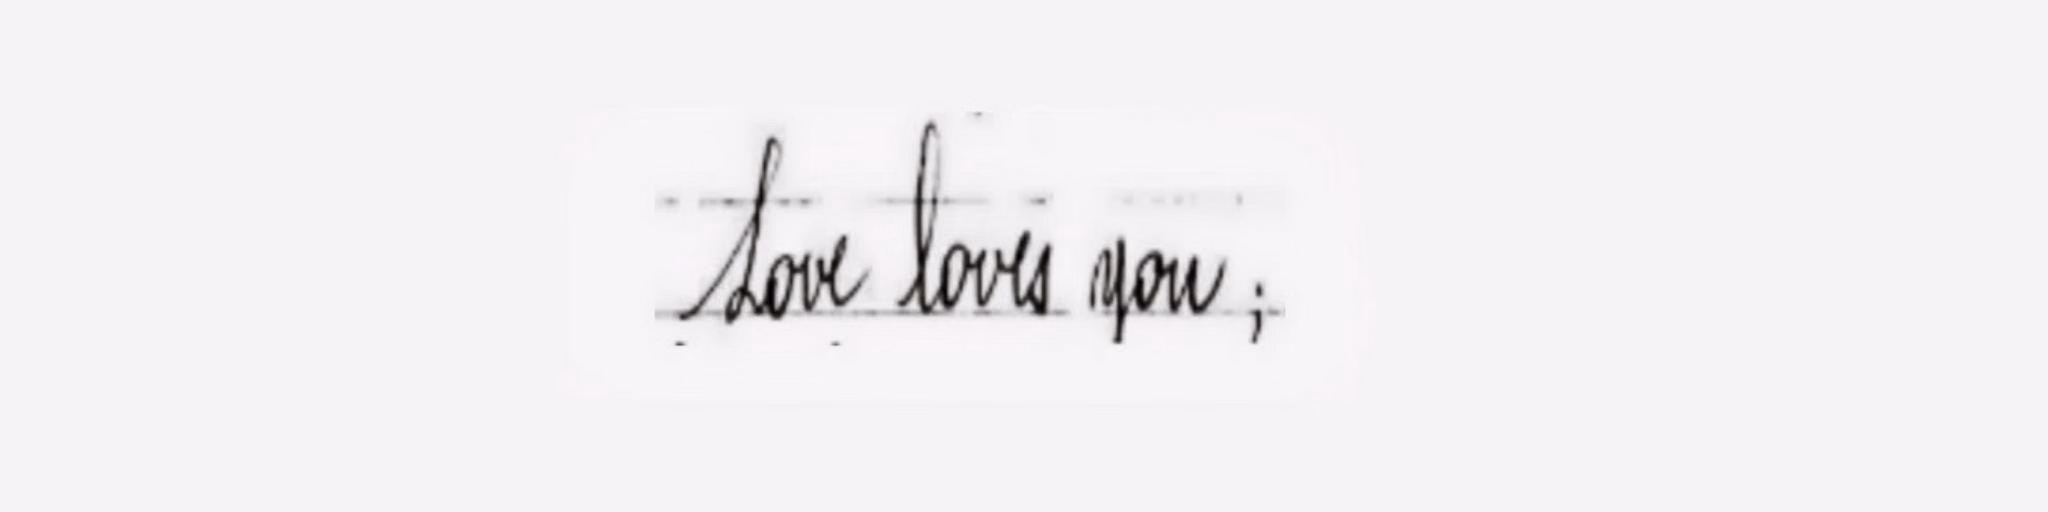 Love loves you;